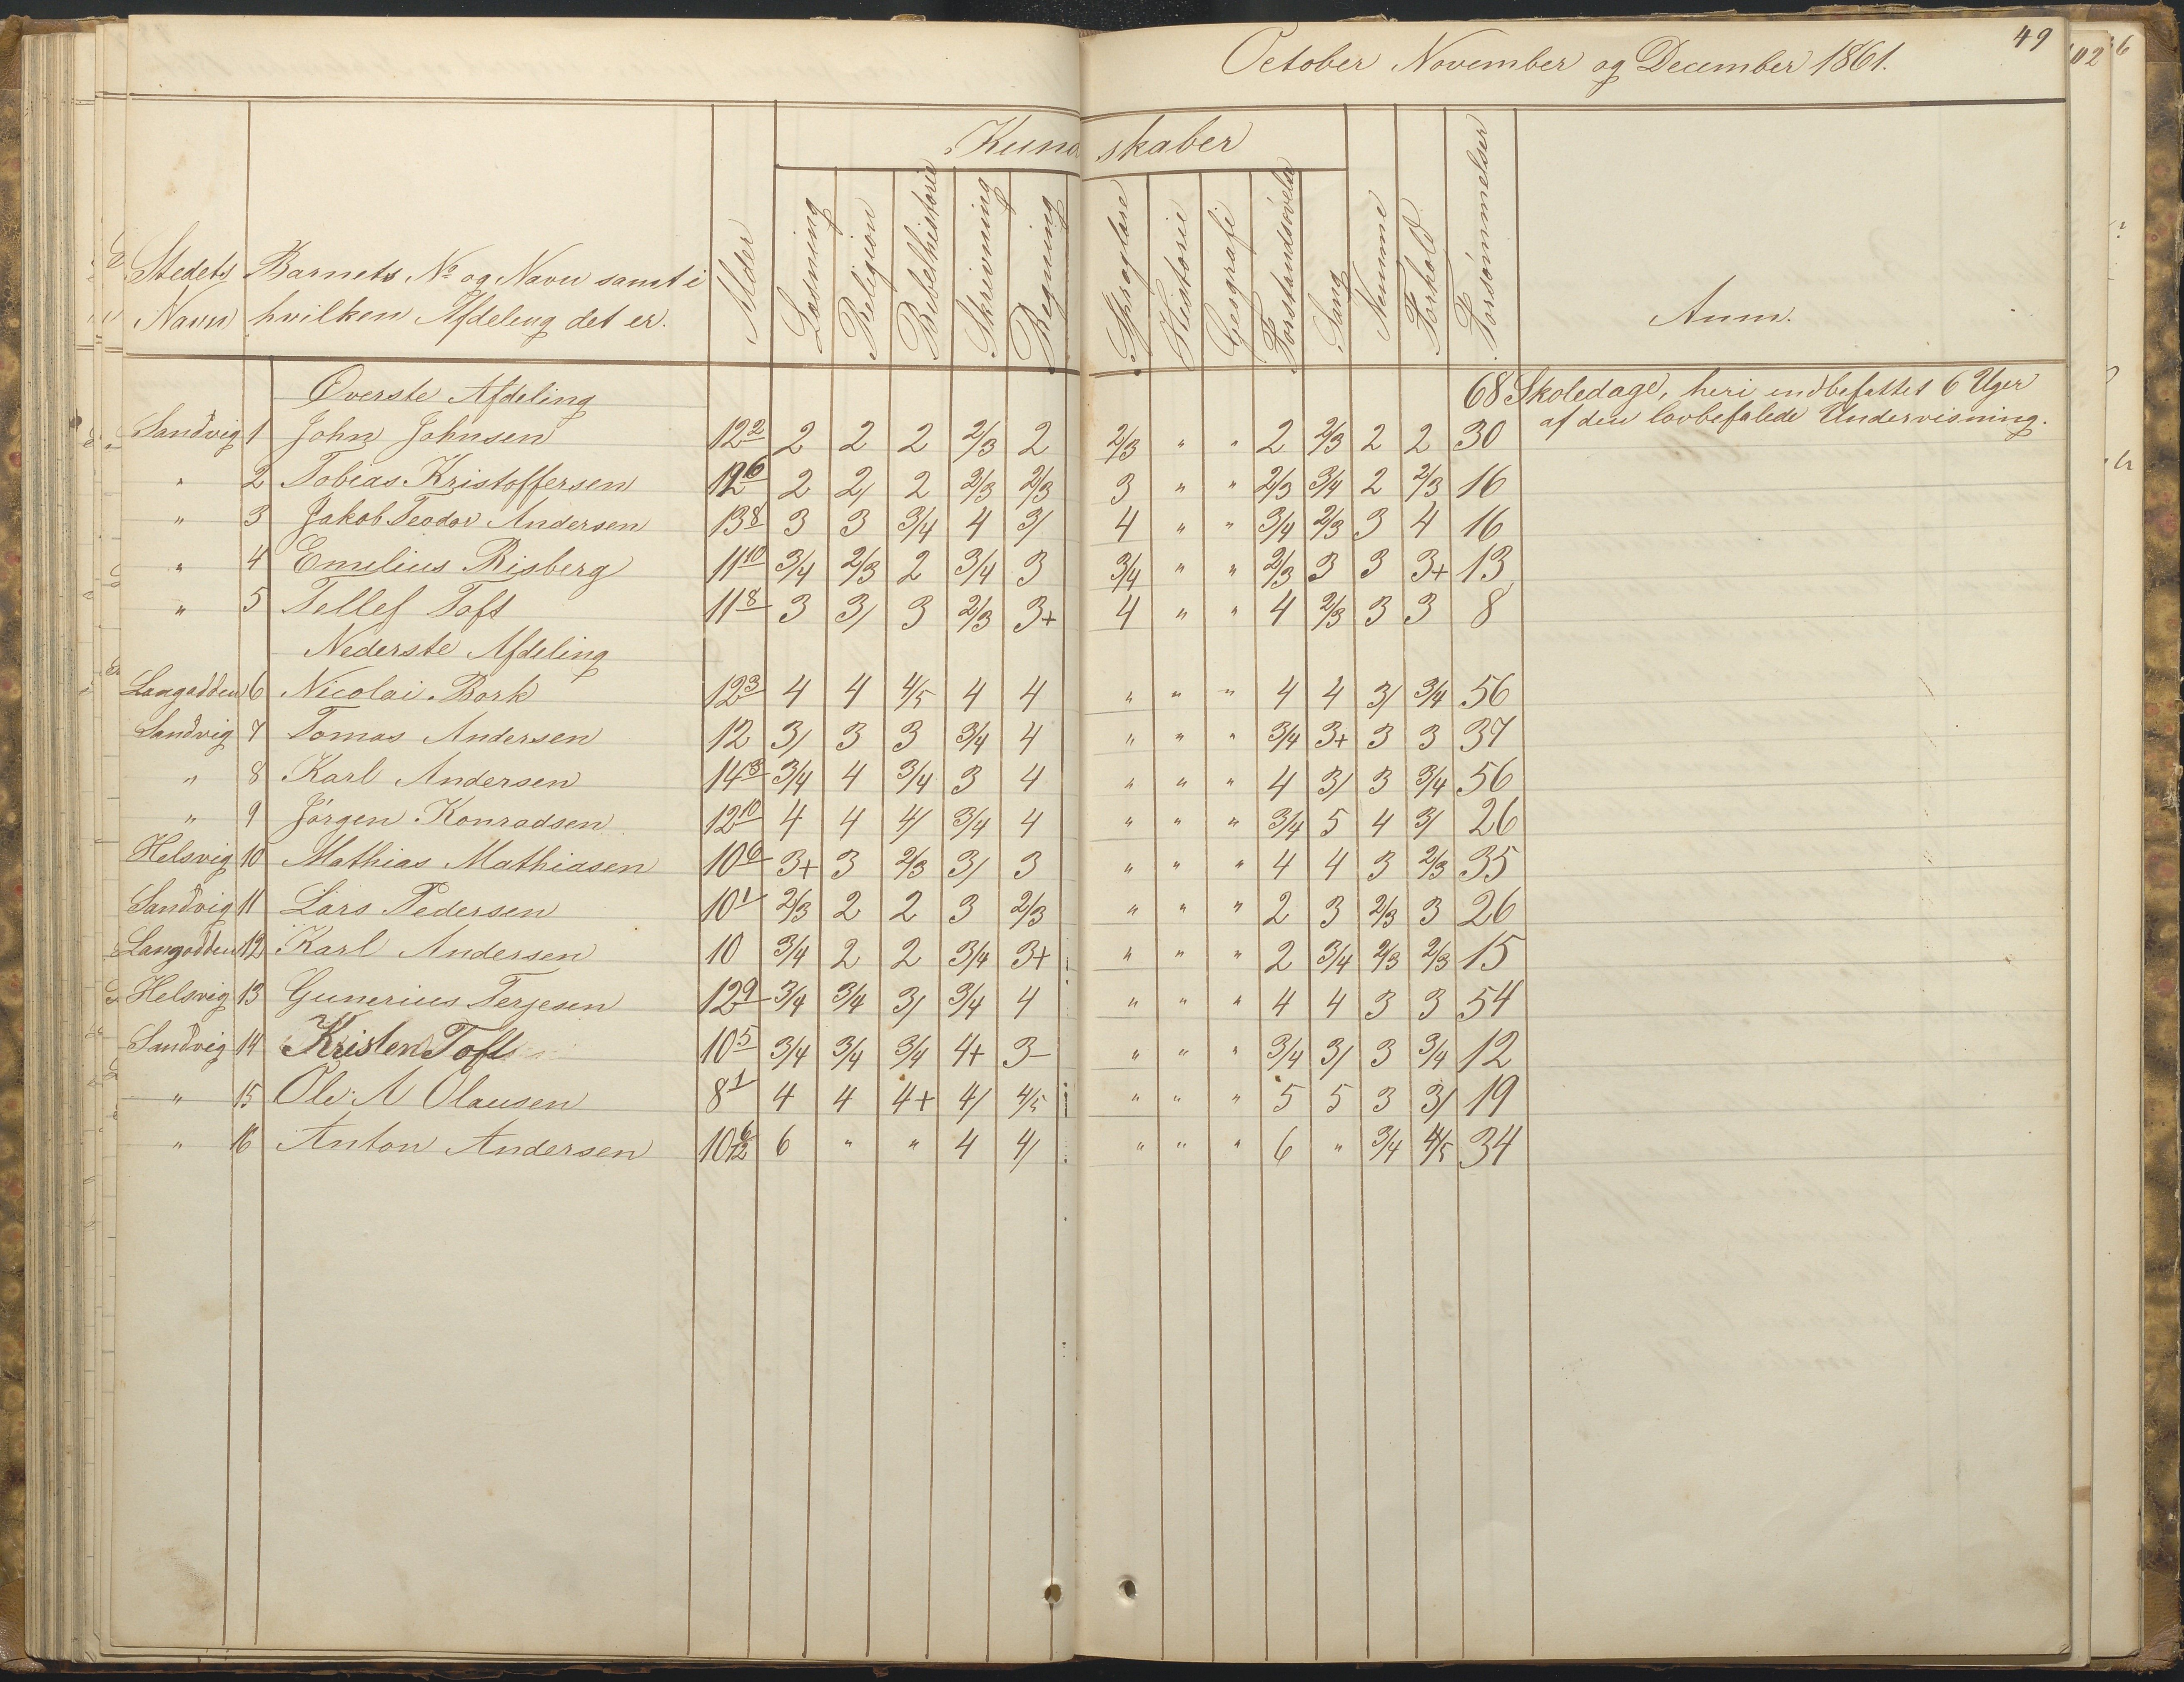 October November og December 1861.
49
Kundskaber
Stedets Navn
Barnets No og Navn samt i hvilken Afdeling det er.
Alder
Læsning
Religion
Bibelhistorie
Skrivning
Regning
Sproglære
Historie
Geografi
Forstandsøvelse
Sang
Nemme
Forhold
Forsømmelser
Anm.
Øverste Afdeling
68 Skoledage, heri indbefattet 6 Uger
af den lovbefalede Undervisning.
Sandvig 1 John Johnsen 12 2 2 2 2 2/3 2 2/3 " " 2 2/3 2 2 30
" 2 Tobias Kristoffersen 12 6 2 2/ 2 2/3 2/3 3 " " 2/3 3/4 2 2/3 16
" 3 Jakob Teodor Andersen 13 8 3 3 3/4 4 3/ 4 " " 3/4 2/3 3 4 16
" 4 Emilius Risberg 11 10 3/4 2/3 2 3/4 3 3/4 " " 2/3 3 3 3+ 13
" 5 Tellef Toft 11 8 3 3/ 3 2/3 3+ 4 " " 4 2/3 3 3 8
Nederste Afdeling
Langodden 6 Nicolai Bork 12 3 4 4 4/5 4 4 " " " 4 4 3/ 3/4 56
Sandvig 7 Tomas Andersen 12 3/ 3 3 3/4 4 " " " 3/4 3+ 3 3 37
" 8 Karl Andersen 14 3 3/4 4 3/4 3 4 " " " 4 3/ 3 3/4 56
" 9 Jörgen Konradsen 12 10 4 4 4/ 3/4 4 " " " 3/4 5 4 3/ 26
Helsvig 10 Mathias Mathiasen 10 6 3+ 3 2/3 3/ 3 " " " 4 4 3 2/3 35
Sandvig 11 Lars Pedersen 10 1 2/3 2 2 3 2/3 " " " 2 3 2/3 3 26
Langodden 12 Karl Andersen 10 3/4 2 2 3/4 3+ " " " 2 3/4 2/3 2/3 15
Helsvig 13 Gunerius Terjesen 12 9 3/4 3/4 3/ 3/4 4 " " " 4 4 3 3 54
Sandvig 14 Kristen Toft 10 5 3/4 3/4 3/4 4+ 3- " " " 3/4 3/ 3 3/4 12
" 15 Ole A Olausen 8 1 4 4 4+ 4/ 4/5 " " " 5 5 3 3/ 19
" 16 Anton Andersen 10 6/12 6 " " 4 4/ " " " 6 " 3/4 4/5 34